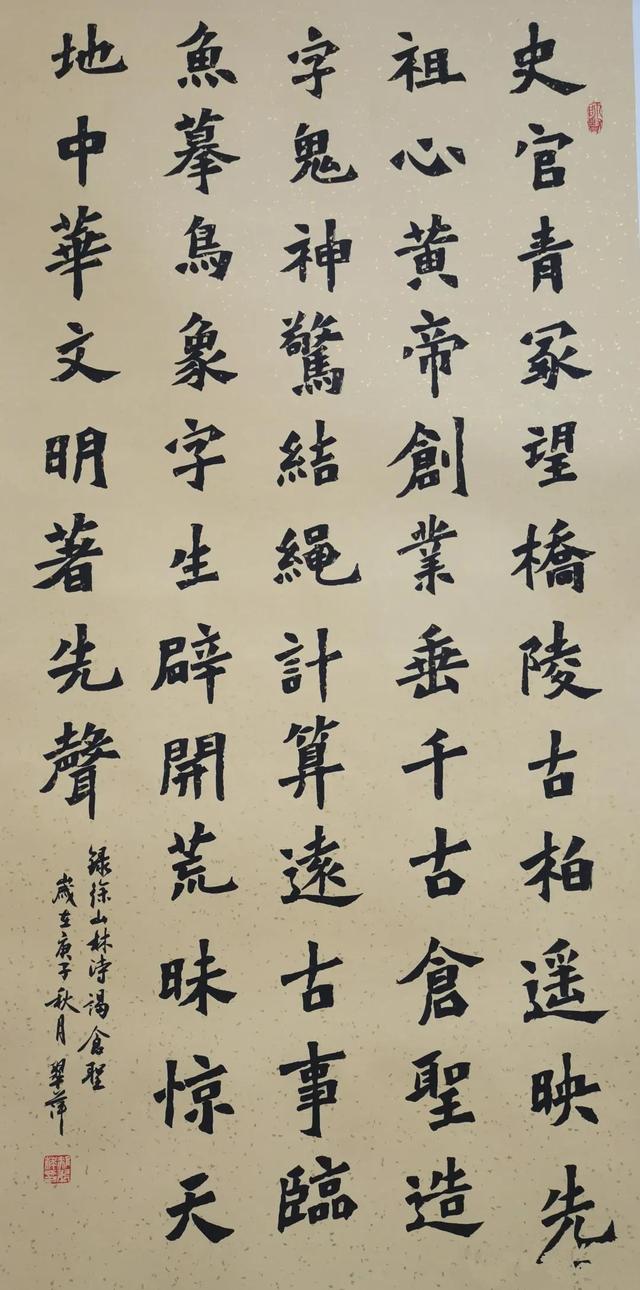 史官青冢望橋陵古柏遥映先
祖心黄帝創業垂千古倉聖造
字鬼神驚結繩計算遠古事臨
魚摹鳥象字生辟開荒昧惊天
地中華文明著先聲
録徐山林诗謁倉聖
歲在庚子秋月翠萍